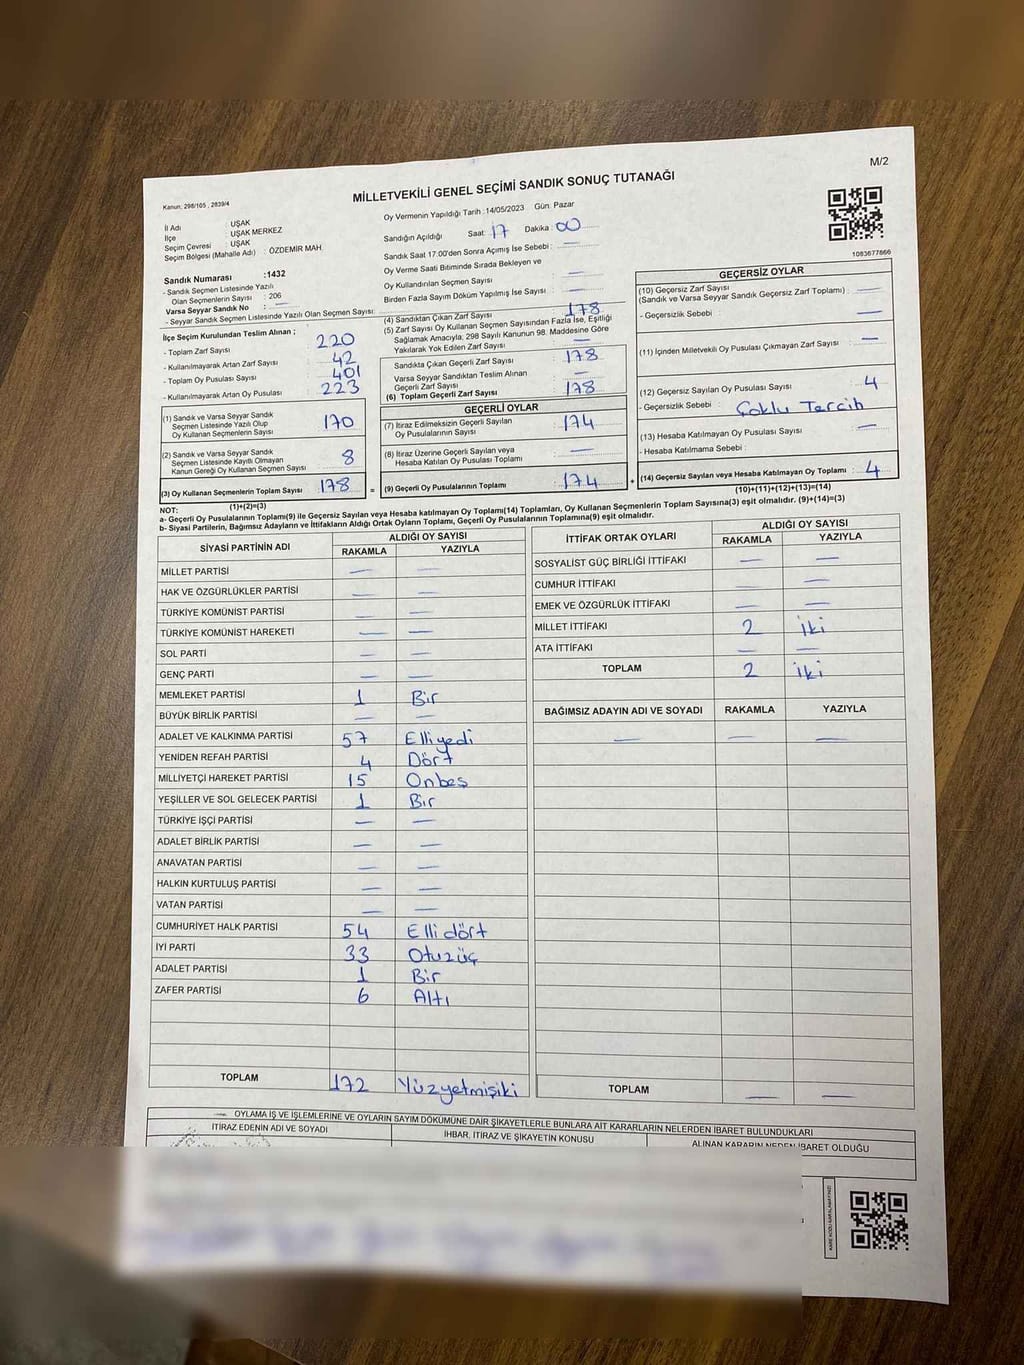 M/2
MİLLETVEKİLİ GENEL SEÇİMİ SANDIK SONUÇ TUTANAĞI
Kanun: 298/105 , 2839/4
İl Adı : UŞAK
İlçe : UŞAK MERKEZ
Seçim Çevresi : UŞAK
Seçim Bölgesi (Mahalle Adı) : ÖZDEMİR MAH.
Sandık Numarası : 1432
- Sandık Seçmen Listesinde Yazılı
Olan Seçmenlerin Sayısı : 206
Varsa Seyyar Sandık No : —
- Seyyar Sandık Seçmen Listesinde Yazılı Olan Seçmen Sayısı:
Oy Vermenin Yapıldığı Tarih : 14/05/2023 Gün: Pazar
Sandığın Açıldığı Saat: 17 Dakika : 00
Sandık Saat 17.00'den Sonra Açımış İse Sebebi : —
Oy Verme Saati Bitiminde Sırada Bekleyen ve
Oy Kullandırılan Seçmen Sayısı : —
Birden Fazla Sayım Döküm Yapılmış İse Sayısı : —
1083677866
İlçe Seçim Kurulundan Teslim Alınan ;
- Toplam Zarf Sayısı : 220
- Kullanılmayarak Artan Zarf Sayısı : 42
- Toplam Oy Pusulası Sayısı : 401
- Kullanılmayarak Artan Oy Pusulası : 223
(1) Sandık ve Varsa Seyyar Sandık
Seçmen Listesinde Yazılı Olup
Oy Kullanan Seçmenlerin Sayısı : 170
(2) Sandık ve Varsa Seyyar Sandık
Seçmen Listesinde Kayıtlı Olmayan
Kanun Gereği Oy Kullanan Seçmen Sayısı : 8
(3) Oy Kullanan Seçmenlerin Toplam Sayısı : 178
(1)+(2)=(3)
(4) Sandıktan Çıkan Zarf Sayısı : 178
(5) Zarf Sayısı Oy Kullanan Seçmen Sayısından Fazla İse, Eşitliği
Sağlamak Amacıyla; 298 Sayılı Kanunun 98. Maddesine Göre
Yakılarak Yok Edilen Zarf Sayısı : —
Sandıkta Çıkan Geçerli Zarf Sayısı : 178
Varsa Seyyar Sandıktan Teslim Alınan
Geçerli Zarf Sayısı : —
(6) Toplam Geçerli Zarf Sayısı : 178
GEÇERLİ OYLAR
(7) İtiraz Edilmeksizin Geçerli Sayılan
Oy Pusulalarının Sayısı : 174
(8) İtiraz Üzerine Geçerli Sayılan veya
Hesaba Katılan Oy Pusulası Toplamı : —
= (9) Geçerli Oy Pusulalarının Toplamı : 174 +
GEÇERSİZ OYLAR
(10) Geçersiz Zarf Sayısı
(Sandık ve Varsa Seyyar Sandık Geçersiz Zarf Toplamı) : —
- Geçersizlik Sebebi : —
(11) İçinden Milletvekili Oy Pusulası Çıkmayan Zarf Sayısı : —
(12) Geçersiz Sayılan Oy Pusulası Sayısı : 4
- Geçersizlik Sebebi : Çoklu Tercih
(13) Hesaba Katılmayan Oy Pusulası Sayısı : —
- Hesaba Katılmama Sebebi :
(14) Geçersiz Sayılan veya Hesaba Katılmayan Oy Toplamı : 4
(10)+(11)+(12)+(13)=(14)
NOT:
a- Geçerli Oy Pusulalarının Toplamı(9) ile Geçersiz Sayılan veya Hesaba katılmayan Oy Toplamı(14) Toplamları, Oy Kullanan Seçmenlerin Toplam Sayısına(3) eşit olmalıdır. (9)+(14)=(3)
b- Siyasi Partilerin, Bağımsız Adayların ve İttifakların Aldığı Ortak Oyların Toplamı, Geçerli Oy Pusulalarının Toplamına(9) eşit olmalıdır.
SİYASİ PARTİNİN ADI ALDIĞI OY SAYISI
RAKAMLA YAZIYLA
MİLLET PARTİSİ — —
HAK VE ÖZGÜRLÜKLER PARTİSİ — —
TÜRKİYE KOMÜNİST PARTİSİ — —
TÜRKİYE KOMÜNİST HAREKETİ — —
SOL PARTİ — —
GENÇ PARTİ — —
MEMLEKET PARTİSİ 1 Bir
BÜYÜK BİRLİK PARTİSİ — —
ADALET VE KALKINMA PARTİSİ 57 Elliyedi
YENİDEN REFAH PARTİSİ 4 Dört
MİLLİYETÇİ HAREKET PARTİSİ 15 Onbeş
YEŞİLLER VE SOL GELECEK PARTİSİ 1 Bir
TÜRKİYE İŞÇİ PARTİSİ — —
ADALET BİRLİK PARTİSİ — —
ANAVATAN PARTİSİ — —
HALKIN KURTULUŞ PARTİSİ — —
VATAN PARTİSİ — —
CUMHURİYET HALK PARTİSİ 54 Elli dört
İYİ PARTİ 33 Otuzüç
ADALET PARTİSİ 1 Bir
ZAFER PARTİSİ 6 Altı
TOPLAM 172 Yüzyetmişiki
İTTİFAK ORTAK OYLARI ALDIĞI OY SAYISI
RAKAMLA YAZIYLA
SOSYALİST GÜÇ BİRLİĞİ İTTİFAKI — —
CUMHUR İTTİFAKI — —
EMEK VE ÖZGÜRLÜK İTTİFAKI — —
MİLLET İTTİFAKI 2 iki
ATA İTTİFAKI — —
TOPLAM 2 iki
BAĞIMSIZ ADAYIN ADI VE SOYADI RAKAMLA YAZIYLA
— — —
TOPLAM — —
OYLAMA İŞ VE İŞLEMLERİNE VE OYLARIN SAYIM DÖKÜMÜNE DAİR ŞİKAYETLERLE BUNLARA AİT KARARLARIN NELERDEN İBARET BULUNDUKLARI
İTİRAZ EDENİN ADI VE SOYADI İHBAR, İTİRAZ VE ŞİKAYETİN KONUSU ALINAN KARARIN NEDEN İBARET OLDUĞU